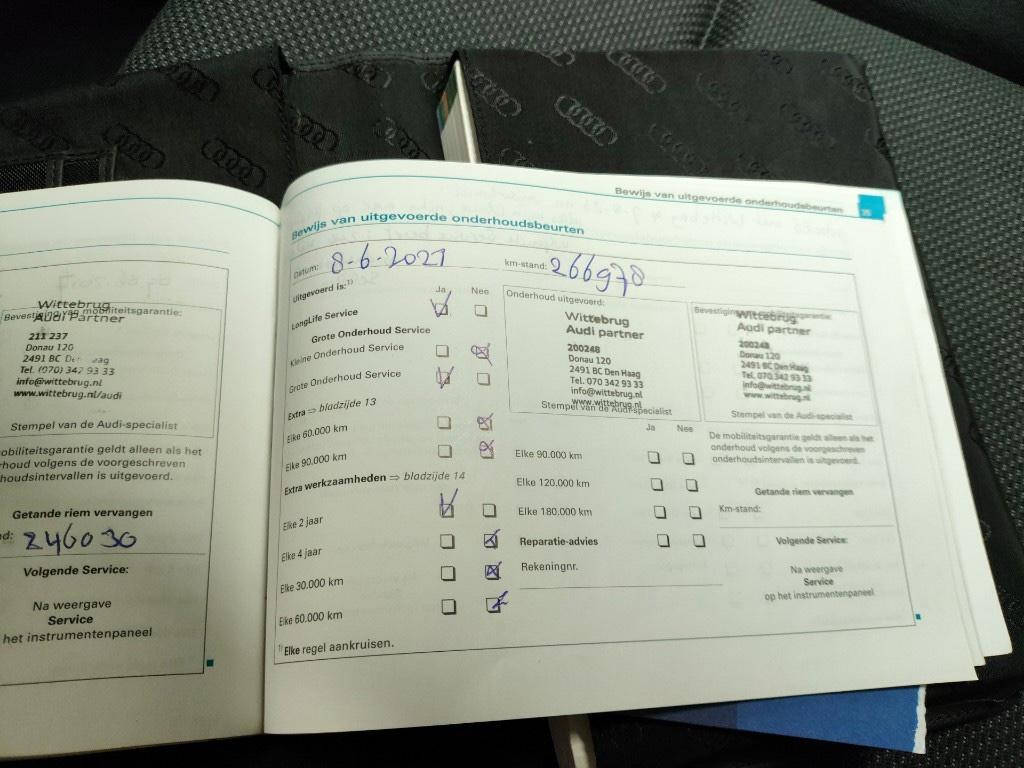 Wittebrug
Audi Partner
Bevestiging van mobiliteitsgarantie:
211 237
Donau 120
2491 BC
Tel. (070) 342 93 33
info@wittebrug.nl
www.wittebrug.nl/audi
Stempel van de Audi-specialist
obiliteitsgarantie geldt alleen als het
rhoud volgens de voorgeschreven
houdsintervallen is uitgevoerd.
Getande riem vervangen
nd: 246030
Volgende Service:
Na weergave
Service
het instrumentenpaneel
Bewijs van uitgevoerde onderhoudsbeurten
Bewijs van uitgevoerde onderhoudsbeurten
Datum: 8-6-2021
km-stand: 266970
Uitgevoerd is:¹⁾ Ja Nee
LongLife Service
Grote Onderhoud Service
Kleine Onderhoud Service
Grote Onderhoud Service
Extra ⇒ bladzijde 13
Elke 60.000 km
Elke 90.000 km
Extra werkzaamheden ⇒ bladzijde 14
Elke 2 jaar
Elke 4 jaar
Elke 30.000 km
Elke 60.000 km
¹⁾ Elke regel aankruisen.
Onderhoud uitgevoerd:
Wittebrug
Audi partner
200248
Donau 120
2491 BC Den Haag
Tel. 070 342 93 33
info@wittebrug.nl
www.wittebrug.nl
Stempel van de Audi-specialist
Ja Nee
Elke 90.000 km
Elke 120.000 km
Elke 180.000 km
Reparatie-advies
Rekeningnr.
Bevestiging van mobiliteitsgarantie:
Wittebrug
Audi partner
200248
Donau 120
2491 BC Den Haag
Tel. 070 342 93 33
info@wittebrug.nl
www.wittebrug.nl
Stempel van de Audi-specialist
De mobiliteitsgarantie geldt alleen als het
onderhoud volgens de voorgeschreven
onderhoudsintervallen is uitgevoerd.
Getande riem vervangen
Km-stand:
Volgende Service:
Na weergave
Service
op het instrumentenpaneel